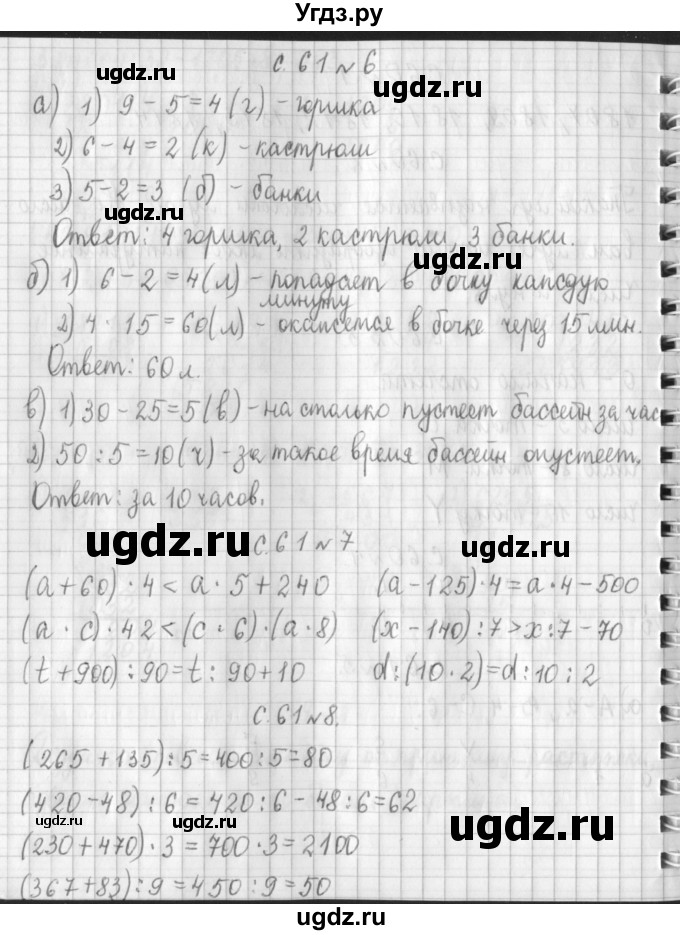 Угдз.ру
с. 61 № 6
а) 1) 9 - 5 = 4 (г) - горшка
2) 6 - 4 = 2 (к) - кастрюли
3) 5 - 2 = 3 (б) - банки
Ответ: 4 горшка, 2 кастрюли, 3 банки.
б) 1) 6 - 2 = 4 (л) - попадает в бочку каждую
минуту
2) 4 · 15 = 60 (л) - окажется в бочке через 15 мин.
Ответ: 60 л.
в) 1) 30 - 25 = 5 (в) - на столько пустеет бассейн за час
2) 50 : 5 = 10 (ч) - за такое время бассейн опустеет.
Ответ: за 10 часов.
с. 61 № 7
(a + 60) · 4 < a · 5 + 240 (a - 125) · 4 = a · 4 - 500
(a · c) · 42 < (c · 6) · (a · 8) (x - 140) : 7 > x : 7 - 70
(t + 900) : 90 = t : 90 + 10 d : (10 · 2) = d : 10 : 2
с. 61 № 8.
(265 + 135) : 5 = 400 : 5 = 80
(420 - 48) : 6 = 420 : 6 - 48 : 6 = 62
(230 + 470) · 3 = 700 · 3 = 2100
(367 + 83) : 9 = 450 : 9 = 50
ugdz.ru
ugdz.ru
ugdz.ru
ugdz.ru
ugdz.ru
ugdz.ru
ugdz.ru
ugdz.ru
ugdz.ru
ugdz.ru